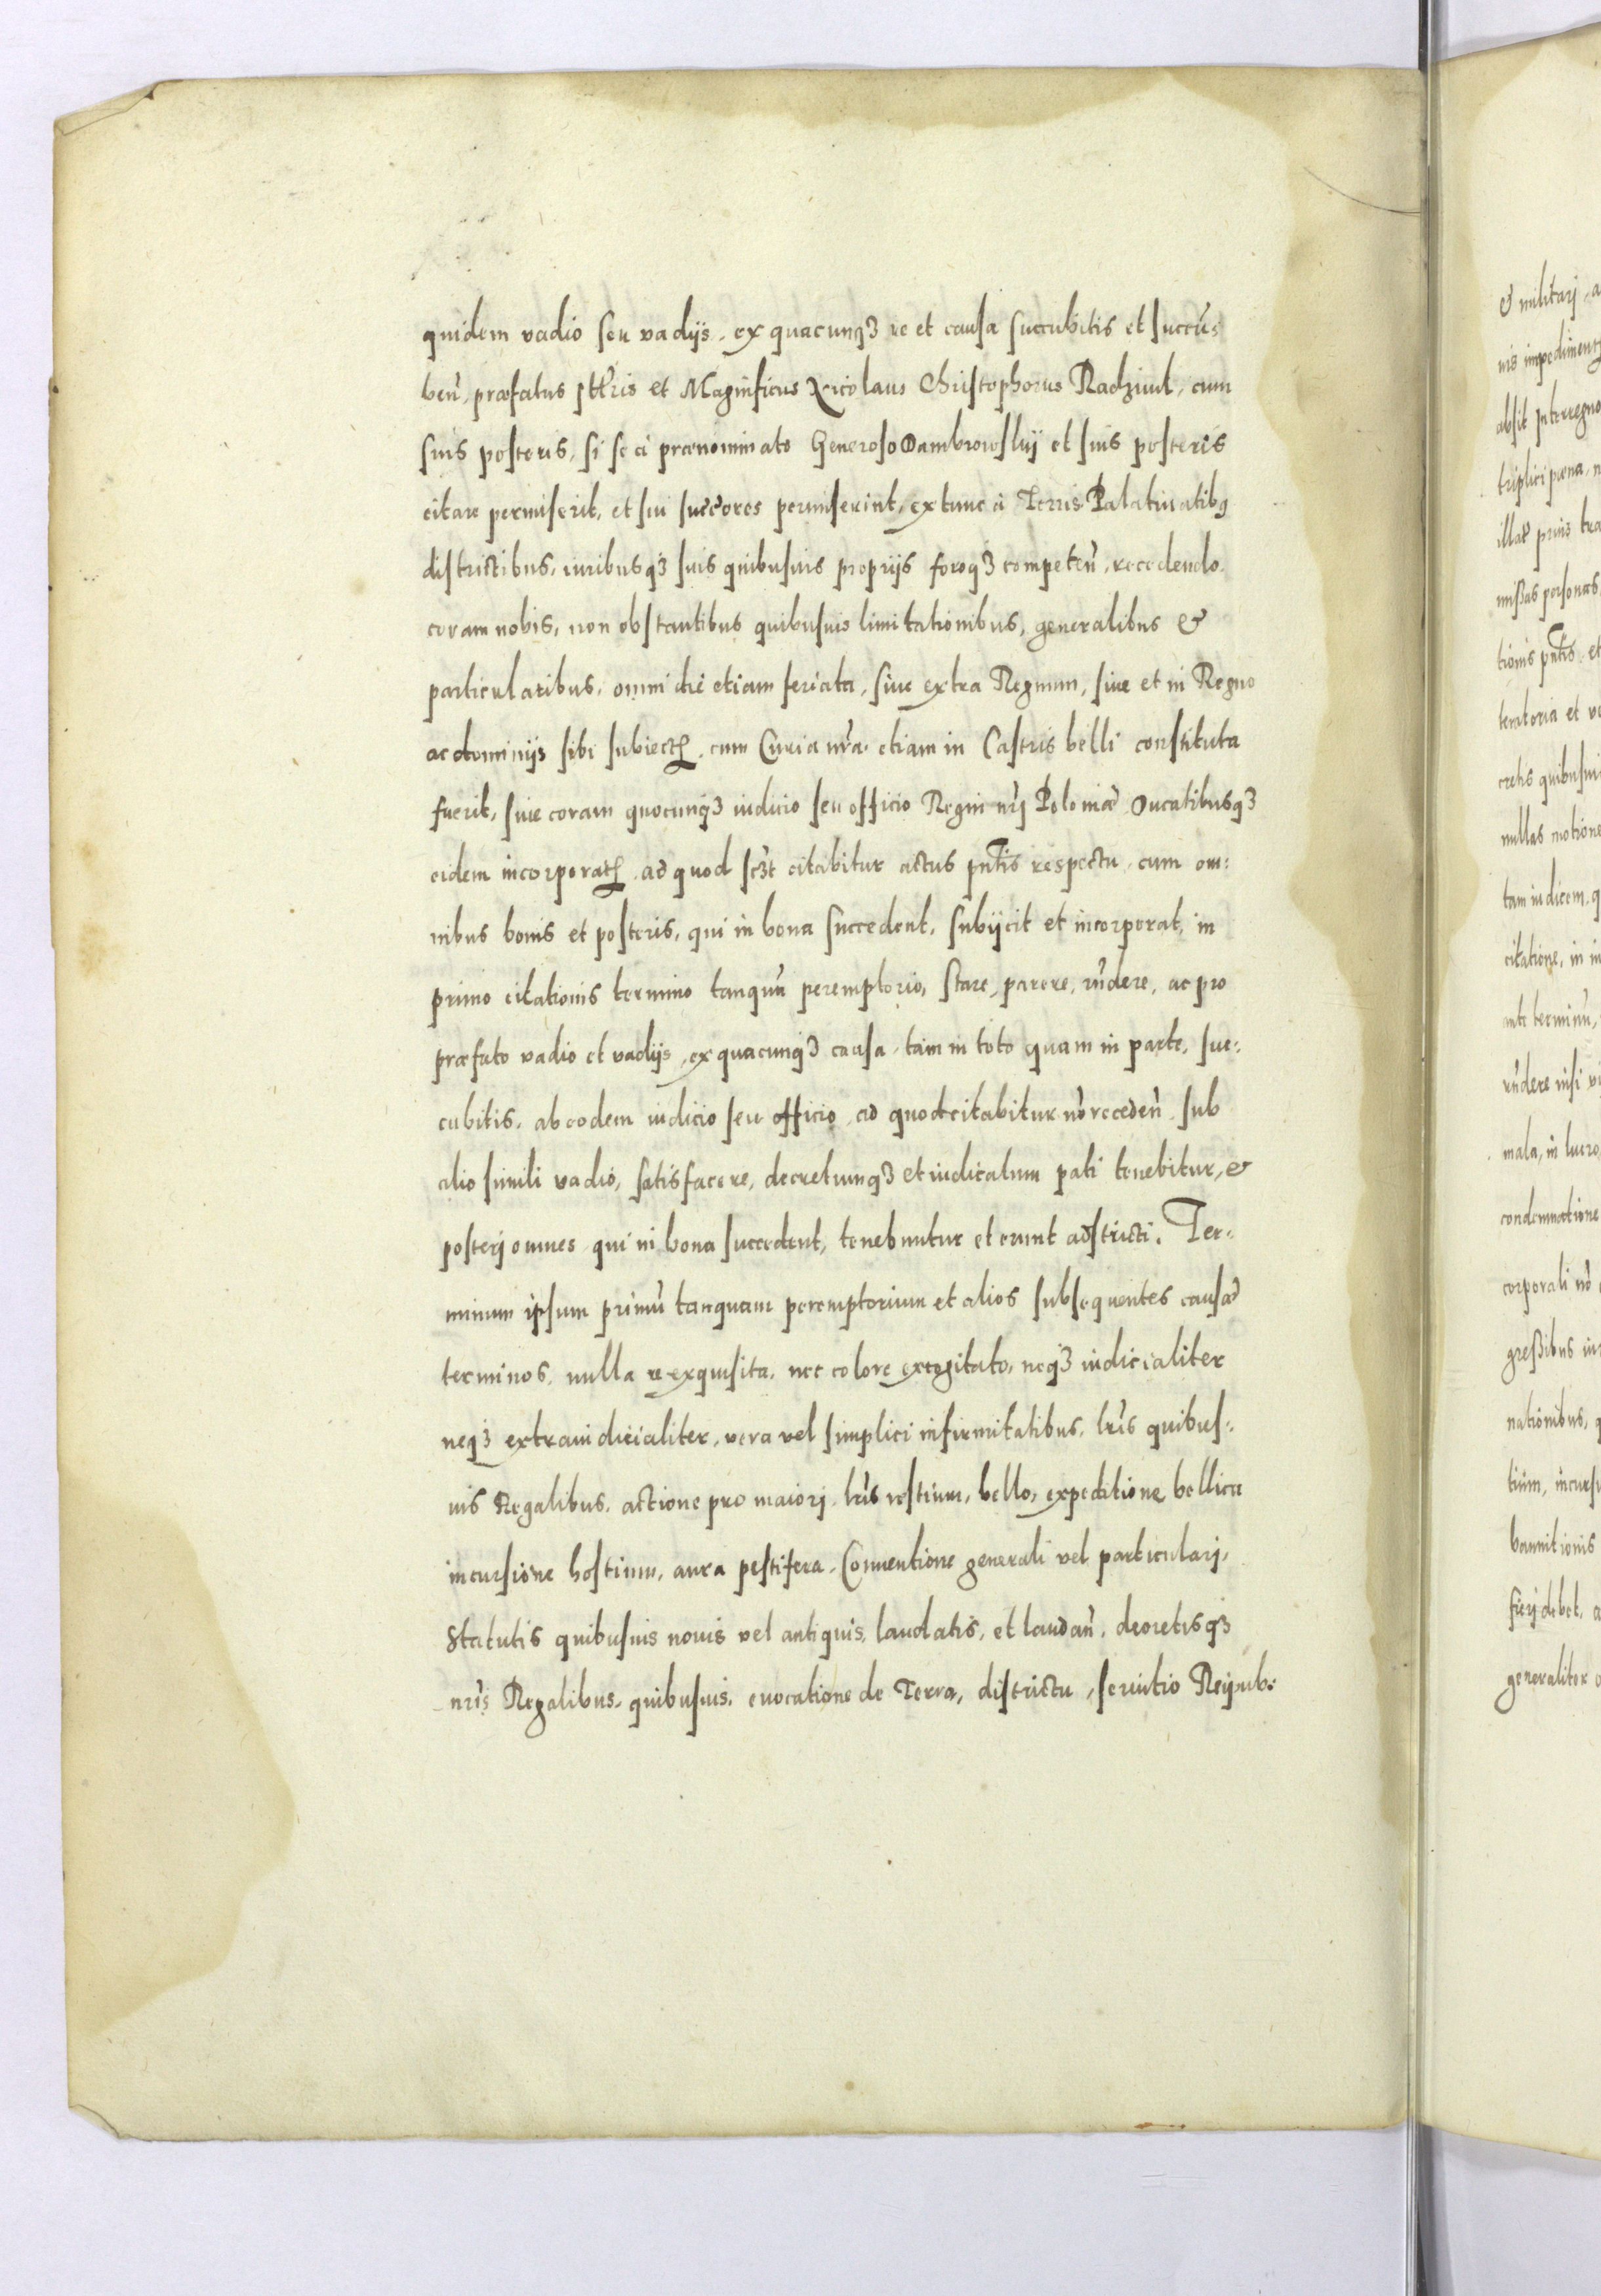 quidem vadio seu vadijs, ex quacunqȝ re et causa succubitis et succū:
ben̄, præfatus Illr̄is et Magnificus Nicolaus Christophorus Radziuil, cum
suis posteris, si se a prænominato Generoso Dambrowskij et suis posteris
citare permiserit, et sui succōres permiserint, extunc a Terris Palatinatibꝰ
districtibus, iuribusqȝ suis quibusuis proprijs foroqȝ competen̄, recedendo.
coram nobis, non obstantibus quibusuis limitationibus, generalibus &
particularibus, omni die etiam feriata, siue extra Regnum, siue et in Regno
ac dominijs sibi subiectꝭ, cum Curia nr̄a etiam in Castris belli constituta
fuerit, siue coram quocunqȝ iudicio seu officio Regni nr̄j Poloniæ Ducatibusqȝ
eidem incorporatꝭ, ad quod scȝt citabitur actus pn̄tis respectu, cum om:
nibus bonis et posteris, qui in bona succedent, subijcit et incorporat, in
primo citationis termino tanqua͂ peremptorio, stare, parere, rn̄dere, ac pro
præfato vadio et vadijs, ex quacunqȝ causa, tam in toto quam in parte, suc:
cubitis, ab eodem iudicio seu officio, ad quod citabitur no͂ receden̄, sub
alio simili vadio, satisfacere, decretumqȝ et iudicatum pati tenebitur, &
posterj omnes qui in bona succedent, tenebuntur et erunt adstricti. Ter:
minum ipsum primū tanquam peremptorium et alios subsequentes causæ
terminos, nulla re exquisita, nec colore excogitato, neqȝ iudicialiter
neqȝ extraiudicialiter, vera vel simplici infirmitatibus, lr̄is quibus:
uis Regalibus, actione pro maiorj, lr̄is testium, bello, expeditione bellica
incursione hostium, aura pestifera, Conuentione generali vel particularj,
Statutis quibusuis nouis vel antiquis, laudatis, et laudan̄, decretisqȝ
nr̄is Regalibus, quibusuis, euocatione de Terra, districtu, seruitio Reipub:
& militarj, a
uis impediment
absit Interregno
triplici pœna, n
illat prius tra
missas personas
tionis pn̄tis, et
teratoria et ve
cretis quibusui
nullas motione
tam iudicem, q
citatione, in in
ante terminū,
rn̄dere nisi vi
mala, in lucro,
condemnatione
corporali no͂
gressibus in
nationibus, q
tium, incursi
bannitionis
fierj debet, a
generaliter o